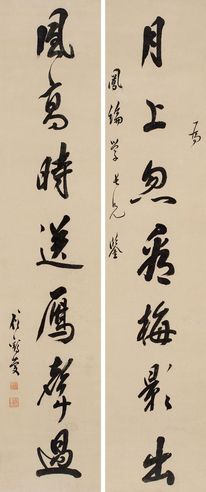 月上忽看梅影出
鳳 学長兄鑒
風高時送鴈聲過